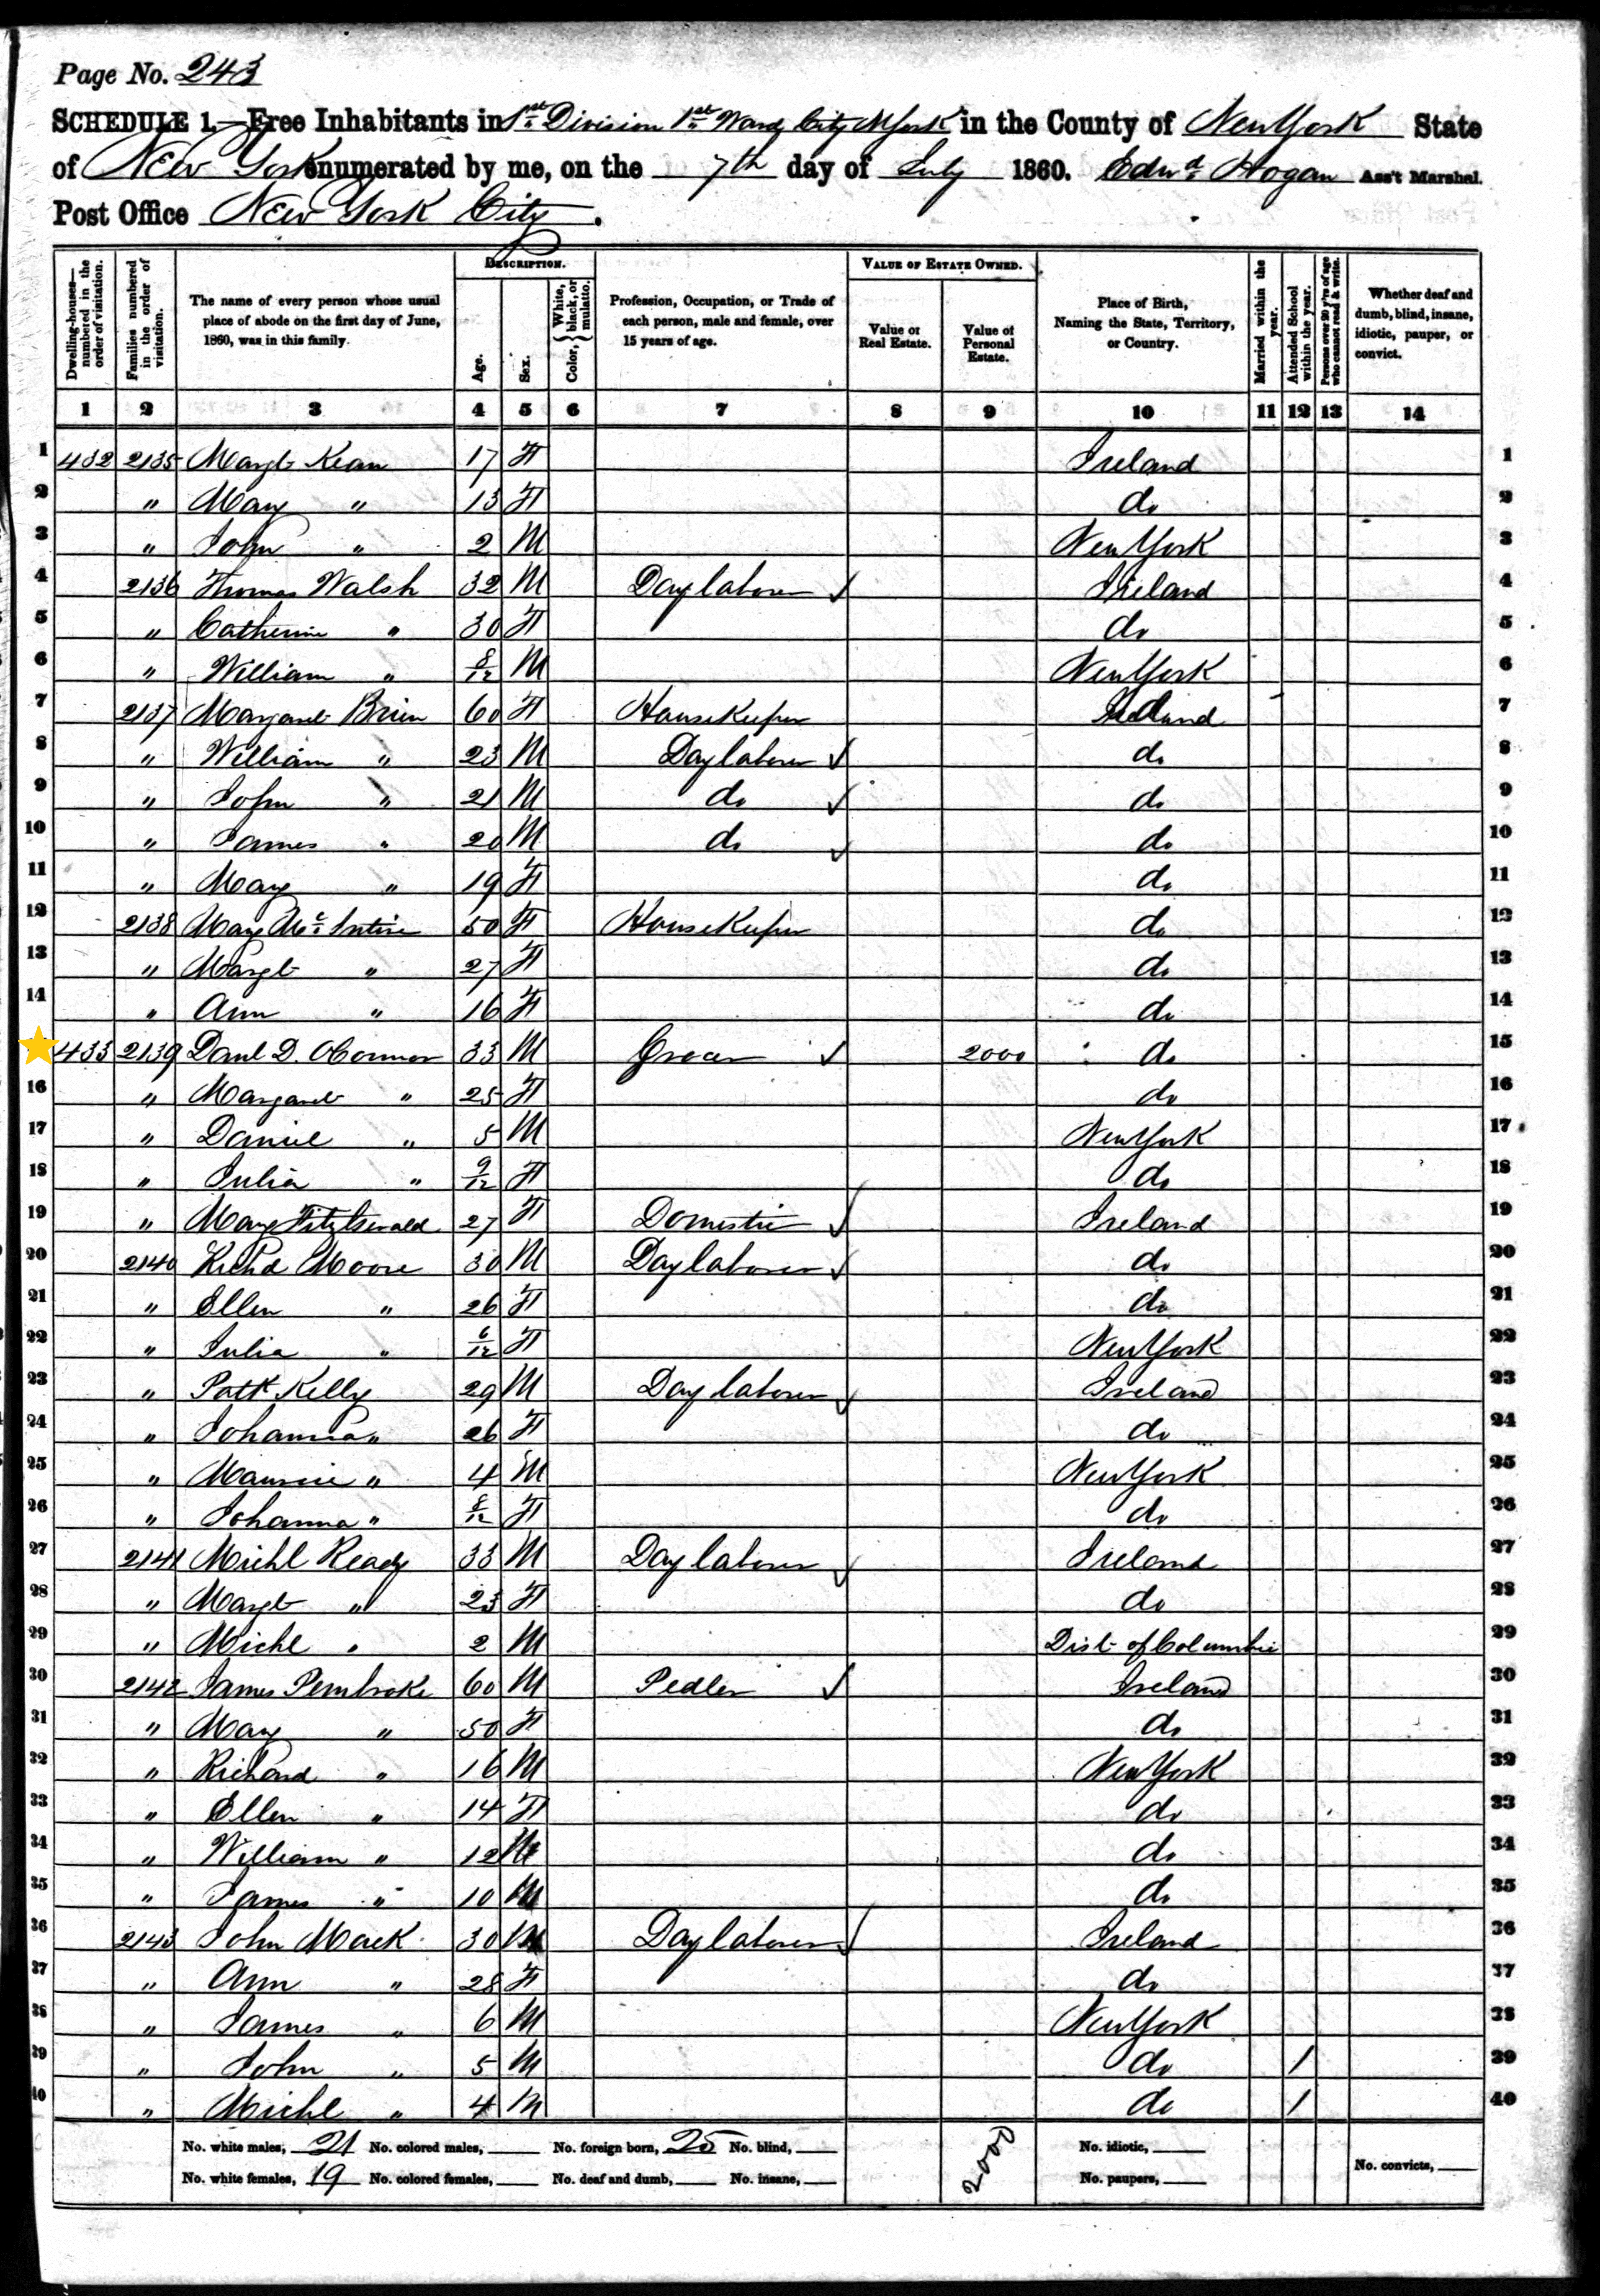 Page No. 243
SCHEDULE 1.—Free Inhabitants in 1st Division 1st Ward City N York in the County of New York State
of New York enumerated by me, on the 7th day of July 1860. Edwd Hogan Ass't Marshal.
Post Office New York City.
Dwelling-houses—numbered in the order of visitation.
Families numbered in the order of visitation.
The name of every person whose usual place of abode on the first day of June, 1860, was in this family.
DESCRIPTION.
Age.
Sex.
Color, { White, black, or mulatto.
Profession, Occupation, or Trade of each person, male and female, over 15 years of age.
VALUE OF ESTATE OWNED.
Value of Real Estate.
Value of Personal Estate.
Place of Birth, Naming the State, Territory, or Country.
Married within the year.
Attended School within the year.
Persons over 20 y'rs of age who cannot read & write.
Whether deaf and dumb, blind, insane, idiotic, pauper, or convict.
1 2 3 4 5 6 7 8 9 10 11 12 13 14
1 432 2135 Margt Kean 17 F Ireland 1
2 " Mary " 13 F do 2
3 " John " 2 M New York 3
4 2136 Thomas Walsh 32 M Day laborer ✓ Ireland 4
5 " Catherine " 30 F do 5
6 " William " 8/12 M New York 6
7 2137 Margaret Brien 60 F HouseKeeper Ireland 7
8 " William " 23 M Day laborer ✓ do 8
9 " John " 21 M do ✓ do 9
10 " James " 20 M do ✓ do 10
11 " Mary " 19 F do 11
12 2138 Mary McIntire 50 F HouseKeeper do 12
13 " Margt " 27 F do 13
14 " Ann " 16 F do 14
433 2139 Danl D. OConnor 33 M Grocer ✓ 2000 do 15
16 " Margaret " 25 F do 16
17 " Daniel " 5 M New York 17
18 " Julia " 9/12 F do 18
19 " Mary Fitzgerald 27 F Domestic ✓ Ireland 19
20 2140 Richd Moore 30 M Day laborer ✓ do 20
21 " Ellen " 26 F do 21
22 " Julia " 6/12 F New York 22
23 " Patk Kelly 29 M Day laborer ✓ Ireland 23
24 " Johanna " 26 F do 24
25 " Maurice " 4 M New York 25
26 " Johanna " 8/12 F do 26
27 2141 Michl Ready 33 M Day laborer ✓ Ireland 27
28 " Margt " 23 F do 28
29 " Michl " 2 M Dist of Columbia 29
30 2142 James Pembroke 60 M Pedler ✓ Ireland 30
31 " Mary " 50 F do 31
32 " Richard " 16 M New York 32
33 " Ellen " 14 F do 33
34 " William " 12 M do 34
35 " James " 10 M do 35
36 2143 John Mack 30 M Day laborer ✓ Ireland 36
37 " Ann " 28 F do 37
38 " James " 6 M New York 38
39 " John " 5 M do / 39
40 " Michl " 4 M do / 40
No. white males, 21 No. colored males, No. foreign born, 25 No. blind, 2000 No. idiotic,
No. white females, 19 No. colored females, No. deaf and dumb, No. insane, No. paupers, No. convicts,